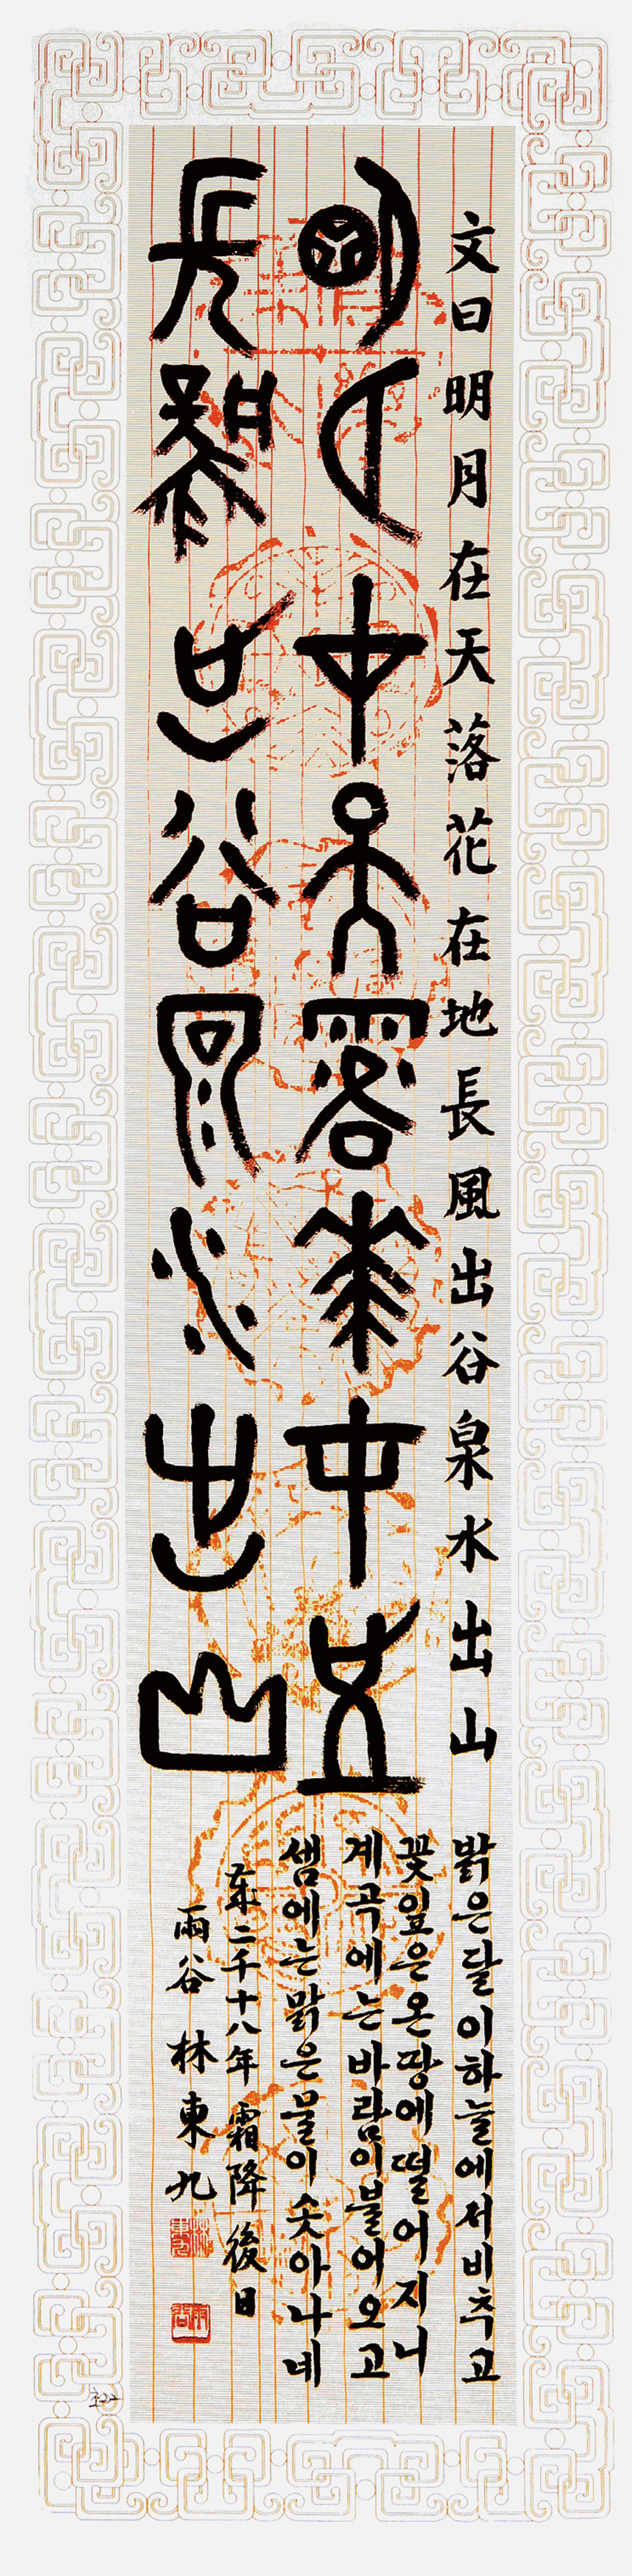 文曰明月在天落花在地長風出谷泉水出山
明月在天落華在地
長風出谷泉水出山
밝은달이하늘에서비추고
꽃잎은온땅에떨어지니
계곡에는바람이불어오고
샘에는맑은물이솟아나네
二千十八年 霜降後日
雨谷 林東九
林東九
雨谷